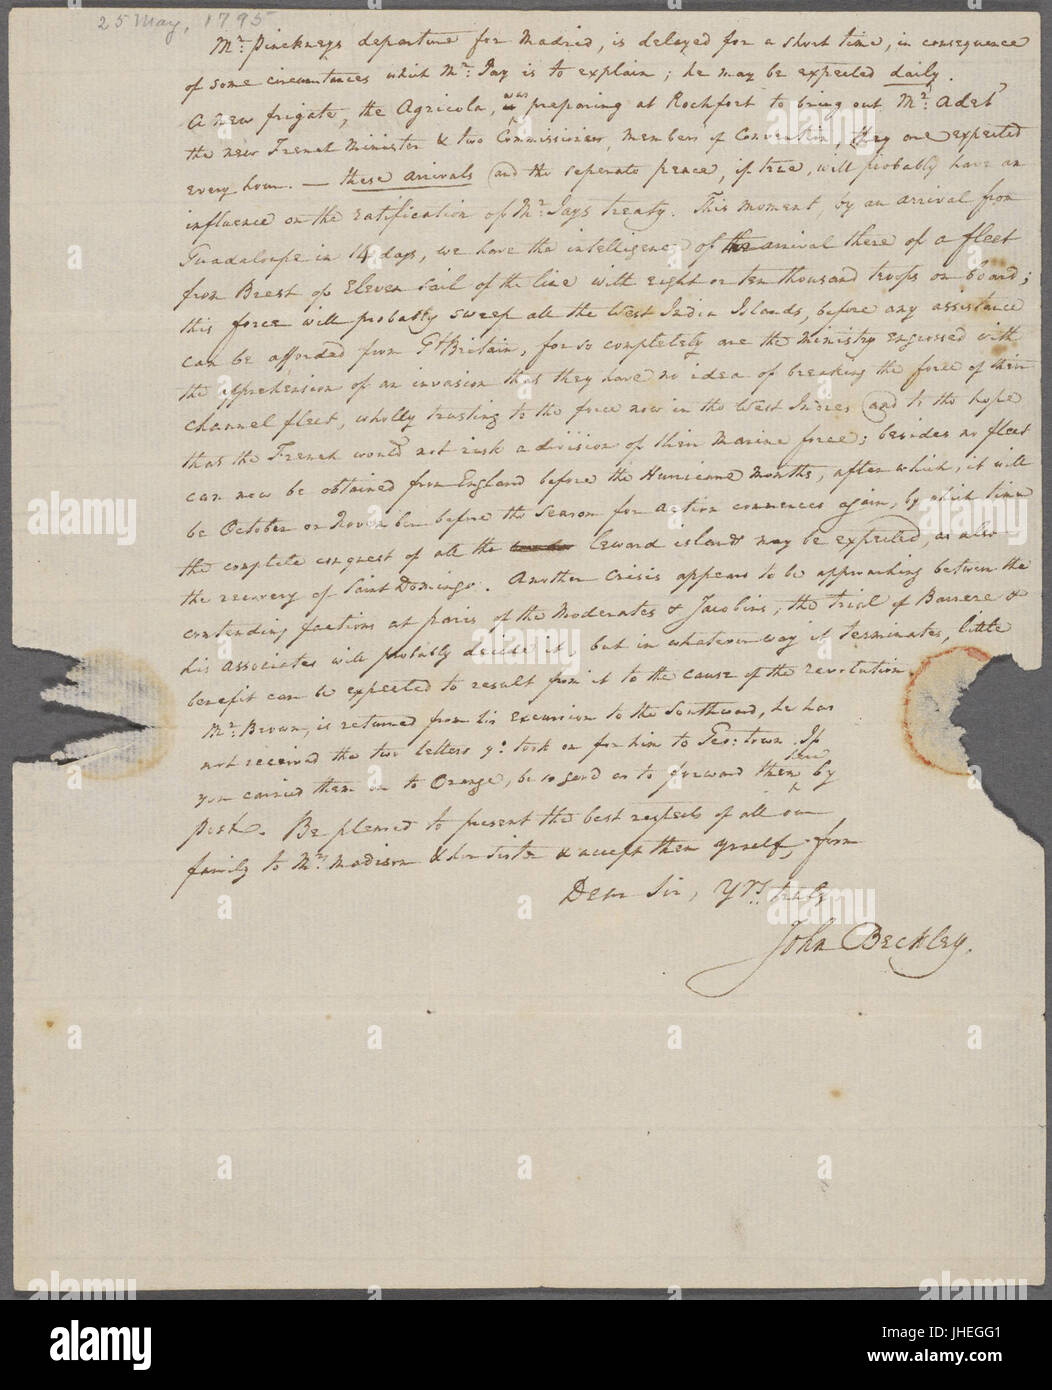 25 May, 1795
Mr. Pinckneys departure for Madrid, is delayed for a short time, in consequence
of some circumstances which Mr. Jay is to explain; he may be expected daily.
A new frigate, the Agricola, was preparing at Rochfort to bring out Mr. Adet,
the new French Minister & two Commissioners, members of Convention, they are expected
every hour. — these arrivals and the seperate peace, if true, will probably have an
influence on the ratification of Mr. Jays treaty. This moment, by an arrival from
Guadaloupe in 14 days, we have the intelligence of the arrival there of a fleet
from Brest of Eleven Sail of the line with eight or ten thousand troops on board;
this force will probably sweep all the West India Islands, before any assistance
can be afforded from Gt Britain, for so completely are the Ministry engrossed with
the apprehension of an invasion that they have no idea of breaking the force of their
channel fleet, wholly trusting to the force now in the West Indies and to the hope
that the French would not risk a division of their Marine force; besides no fleet
can now be obtained from England before the Hurricane Months, after which, it will
be October or November before the Season for action commences again, by which time
the complete conquest of all the Leward islands may be expected, as also
the recovery of Saint Domingo. Another crisis appears to be approaching between the
contending factions at paris of the Moderates & Jacobins, the trial of Barrere &
his associates will probably decide it, but in whatever way it terminates, little
benefit can be expected to result from it to the cause of the revolution.
Mr. Brown, is returned from his excursion to the Southward, he has
not received the two letters yo: took on for him to Geo: town. If
you carried them on to Orange, be so good as to forward them here by
post. Be pleased to present the best respects of all our
family to Mrs. Madison & her Sister & accept them yrself, from
Dear Sir, Yrs. truly
John Beckley.
a alamy stock photo
alamy
a
Image ID: JHEGG1
www.alamy.com